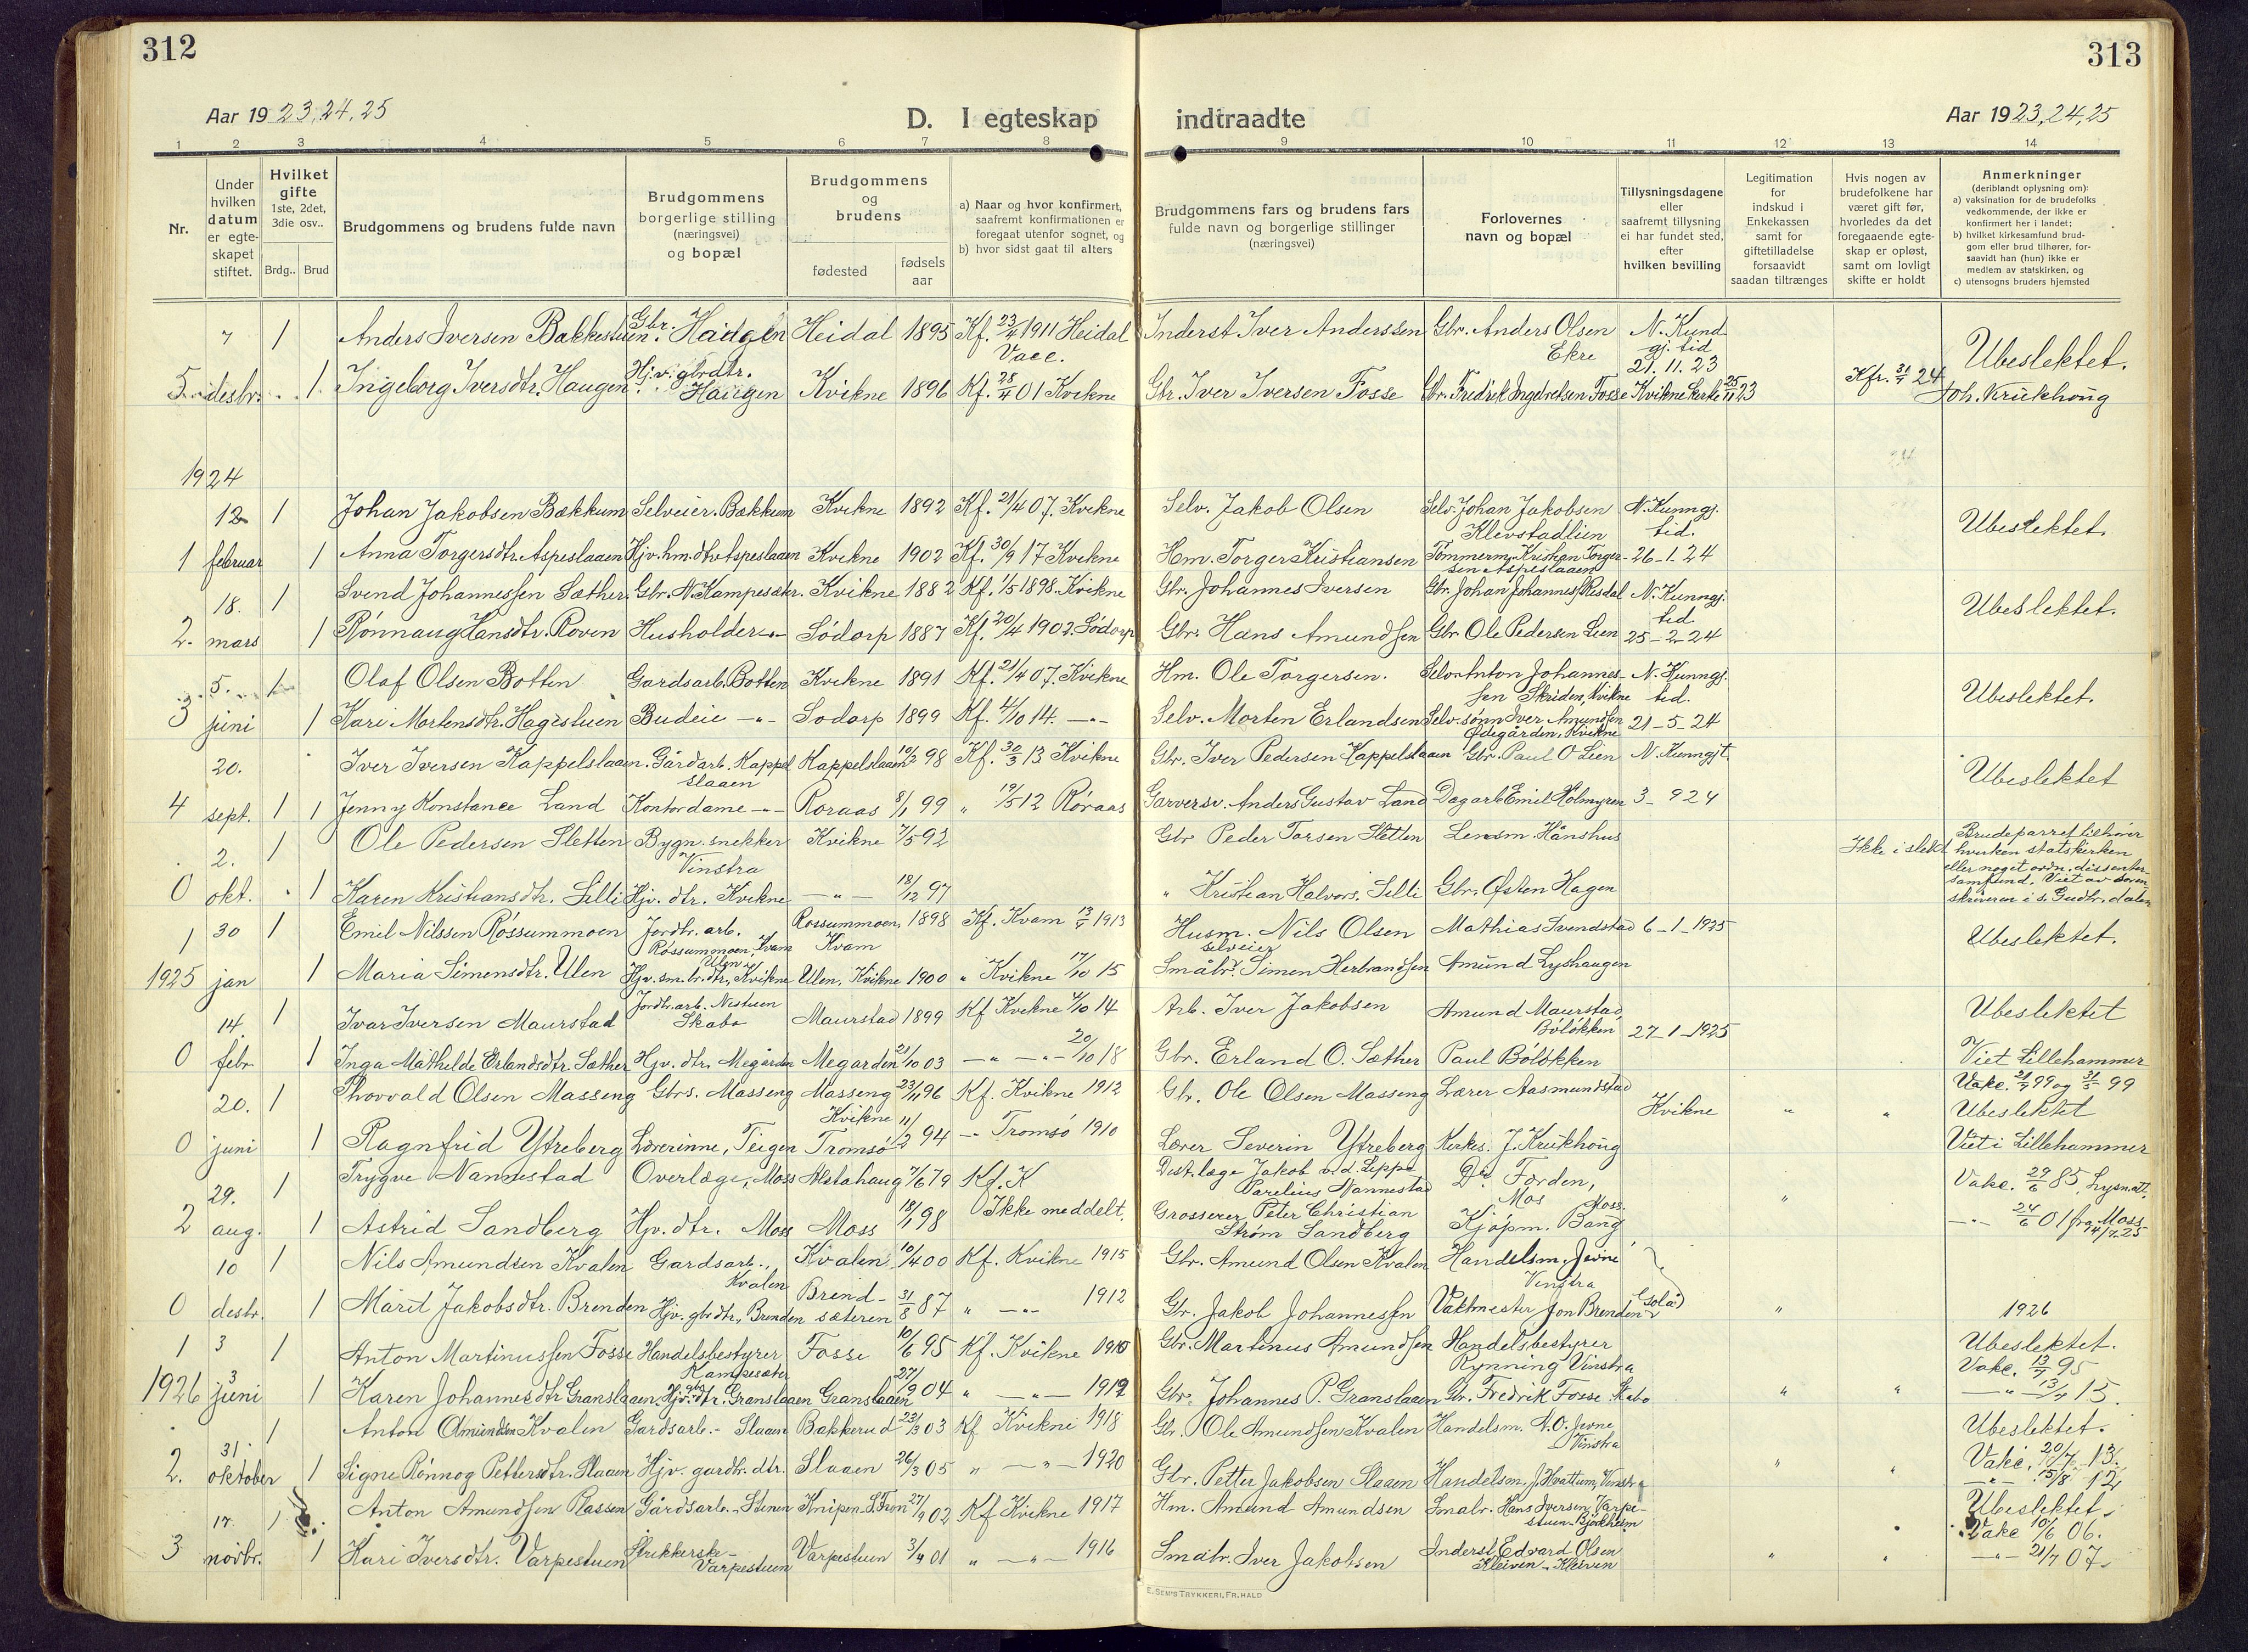 312
Aar 1923,24,25
D. I egteskap
1 2 3 4 5 6 7 8
Nr.
Under hvilken datum er egte-skapet stiftet.
Hvilket gifte 1ste, 2det, 3die osv..
Brdg.. Brud
Brudgommens og brudens fulde navn
Brudgommens borgerlige stilling (næringsvei) og bopæl
Brudgommens og brudens
fødested
fødsels aar
a) Naar og hvor konfirmert, saafremt konfirmationen er foregaat utenfor sognet, og
b) hvor sidst gaat til alters
7 1 Anders Iversen Bakkestuen Gbr. Haugen Heidal 1895 Kf. 23/4 1911 Heidal
Vacc.
5 desbr. 1 Ingeborg Iversdtr. Haugen Hjv. gbrdtr. Haugen Kvikne 1896 Kf. 28/4 01 Kvikne
1924
12 1 Johan Jakobsen Bækkum Selveier. Bækkum Kvikne 1892 Kf. 21/4 07. Kvikne
1 februar 1 Anna Torgersdtr. Aspeslaaen Hjv. hm. dtr. Aspeslaaen Kvikne 1902 Kf. 30/9 17 Kvikne
18. 1 Svend Johannessen Sæther Gbr. N. Kampesætr. Kvikne 1882 Kf. 1/5 1898. Kvikne
2. mars 1 Rønnaug Hansdtr. Roven Husholder -"- Sødorp 1887 Kf. 20/4 1902. Sødorp
5. 1 Olaf Olsen Botten Gardsarb. Botten Kvikne 1891 Kf. 21/4 07. Kvikne
3 juni 1 Kari Mortensdtr. Hagestuen Budeie -"- Sødorp 1899 Kf. 4/10 14. -"-
20. Iver Iversen Kappelslaaen. Gårdarb. Kappelslaaen Kappelslaaen 10/2 98 Kf. 30/3 13 Kvikne
4 sept. 1 1 Jenny Konstance Land Kontordame -"- Røraas 8/1 99 " 19/5 12 Røraas
2. 1 Ole Pedersen Sletten Bygn. snekker Vinstra Kvikne 7/5 92
0 okt. 1 Karen Kristiansdtr. Lilli Hjv. dtr. Kvikne -"- 18/12 97
1 30 1 Emil Nilssen Røssummoen Jordbr. arb. Røssummoen, Kvam Røssummoen, Kvam 1898 Kf. Kvam 13/4 1913
1925 jan 1 Maria Simensdtr. Ulen Hjv. sm. br. dtr. Ulen, Kvikne Ulen, Kvikne 1900 " Kvikne 17/10 15
14. 1 Ivar Iversen Maurstad Jordbr. arb. Nestuen Skabo Maurstad 1899 Kf Kvikne 4/10 14
0 febr 1 Inga Mathelde Erlandsdtr. Sæther Hjv. dtr. Megården Megarden 21/10 03 -"- -"- 20/10 18
20. 1 Thorvald Olsen Masseng Gbrs. Masseng Masseng Kvikne 23/11 96 Kf. Kvikne 1912
0 juni 1 Ragnfrid Ytreberg Lærerinne, Teigen Tromsø 11/2 94 -"- Tromsø 1910
29. 1 Trygve Nannestad Overlæge, Moss Alstahaug 7/6 79 Kf. K
2 aug. 1 Astrid Sandberg Hjv. dtr. Moss Moss 18/1 98 Ikke meddelt.
10 1 Nils Amundsen Kvalen Gardsarb., Kvalen Kvalen 10/4 00 Kf. Kvikne 1915
0 desbr. 1 Marit Jakobsdtr. Brenden Hjv. gbrdtr., Brenden Brend-sæteren 31/8 87 " -"- 1912
1 3 1 Anton Martinussen Fosse Handelsbestyrer Kampesæter Fosse 10/6 95 Kf. Kvikne 1910
1926 3 juni 1 Karen Johannesdtr Granslaaen. Hjv. gbr. dtr. Granslaaen Granslaaen 27/9 04 " -"- 1919
31. 1 Anton Amundsen Kvalen Gardsarb.- Slaaen Bakkerud 23/3 03 Kf Kvikne 1918
2. oktober 1 Signe Rønnog Pettersdtr. Slaaen Hjv. gardbr. dtr. Slaaen 26/3 05 " -"- 1920
17. 1 Anton Amundsen Plassen Gårdsarb.- Stenen Knipen - S. Fron 27/9 02 Kf Kvikne 1917
3 novbr. 1 Kari Iversdtr. Varpestuen Strikkerske - Varpestuen Varpestuen 3/4 01 " -"- 1916
313
indtraadte
Aar 1923,24,25
9 10 11 12 13 14
Brudgommens fars og brudens fars fulde navn og borgerlige stillinger (næringsvei)
Forlovernes navn og bopæl
Tillysningsdagene eller saafremt tillysning ei har fundet sted, efter hvilken bevilling
Legitimation for indskud i Enkekassen samt for giftetilladelse forsaavidt saadan tiltrænges
Hvis nogen av brudefolkene har været gift før, hvorledes da det foregaaende egte-skap er opløst, samt om lovligt skifte er holdt
Anmerkninger
(deriblandt oplysning om):
a) vaksination for de brudefolks vedkommende, der ikke er konfirmert her i landet;
b) hvilket kirkesamfund brud-gom eller brud tilhører, for-saavidt han (hun) ikke er medlem av statskirken, og
c) utensogns bruders hjemsted
Inderst Iver Anderssen Gbr. Anders Olsen Ekre N. Kund gj. tid 21.11.23 Ubeslektet.
Gbr. Iver Iversen Fosse Gbr. Fredrik Ingebretsen Fosse Kvikne kirke 25/11 23 Kfr. 31/7 24 Joh. Krukhoug
Selv. Jakob Olsen Selv. Johan Jakobsen Klevstadlien N. Kunngj. tid. Ubeslektet.
Hm. Torger Kristiansen Tømmerm. Kristian Torgersen Aspeslaaen 26-1-24
Gbr. Johannes Iversen Gbr. Johan Johannes Risdal N. Kunngj. tid Ubeslektet.
Gbr. Hans Amundsen Gbr Ole Pedersen Lien 25-2-24
Hm. Ole Torgersen. Selv. Anton Johannessen Skriden, Kvikne N. Kunngj. tid. Ubeslektet.
Selv. Morten Erlandsen Selv. sønn Iver Amundsen Ødegården, Kvikne 21-5-24
Gbr. Iver Pedersen Kappelslaaen Gbr. Paul O Lien N. Kunngjt. Ubeslektet
Garversv. Anders Gustav Land Dagarb Emil Holmgren 3-924
Gbr Peder Torsen Sletten Lensm. Hånshus Ikke i slekt Brudeparret tilhører hverken statskirken eller noget ordn. dissenter-samfund. Viet av soren-skriveren i s. Gudbr. dalen
" Kristian Halvors. Lilli Gbr. Østen Hagen
Husm. Nils Olsen Mathias Svendstad 6-1-1925 Ubeslektet.
selveier
Småbr. Simen Herbrandsen Amund Lyshaugen
Arb. Iver Jakobsen Amund Maurstad, Bøløkken 27-1-1925 Ubeslektet
Gbr. Erland O. Sæther Paul Bøløkken Viet Lillehammer
Gbr. Ole Olsen Masseng Lærer Aasmundstad Kvikne " " Vake. 21/9 99 og 31/5 99 Ubeslektet
Lærer Severin Ytreberg Kirkes. J. Krukhoug Viet i Lillehammer
Distr. læge Jakob v. d. Lippe Parelius Nannestad Dr. Førden, Mos " Vakc. 29/6 85, Lysn.att.
Grosserer Peter Christian Strøm Sandberg Kjøpm. Bang Moss. -"- 24/6 01 fra Moss 14/7.25
Gbr. Amund Olsen Kvalen Handelsm. Jevne Vinstra
Gbr. Jakob Johannessen Vaktmester Jon Brenden (Solå) " 1926
Gbr. Martinus Amundsen Handelsbestyrer Rynning Vinstra Ubeslektet. Vakc. 13/7 95
Gbr. Johannes P. Granslaaen Gbr. Fredrik Fosse Skabo " " -"- 13/4 15.
Gbr. Ole Amundsen Kvalen Handelsm. N. O. Jevne Vinstra Ubeslektet. Vakc. 20/7 13.
Gbr. Petter Jakobsen Slaaen Handelsm. J. Hvattum, Vinstra " " -"- 15/8 12
Hm. Amund Amundsen Småbr. Hans Iversen, Varpestuen - Bjørkheim Ubeslektet. Vakc 10/6 06.
Småbr. Iver Jakobsen Inderst Edvard Olsen Kleiven - Kleiven " " -"- 21/7 07
E. SEM'S TRYKKERI, FR.HALD